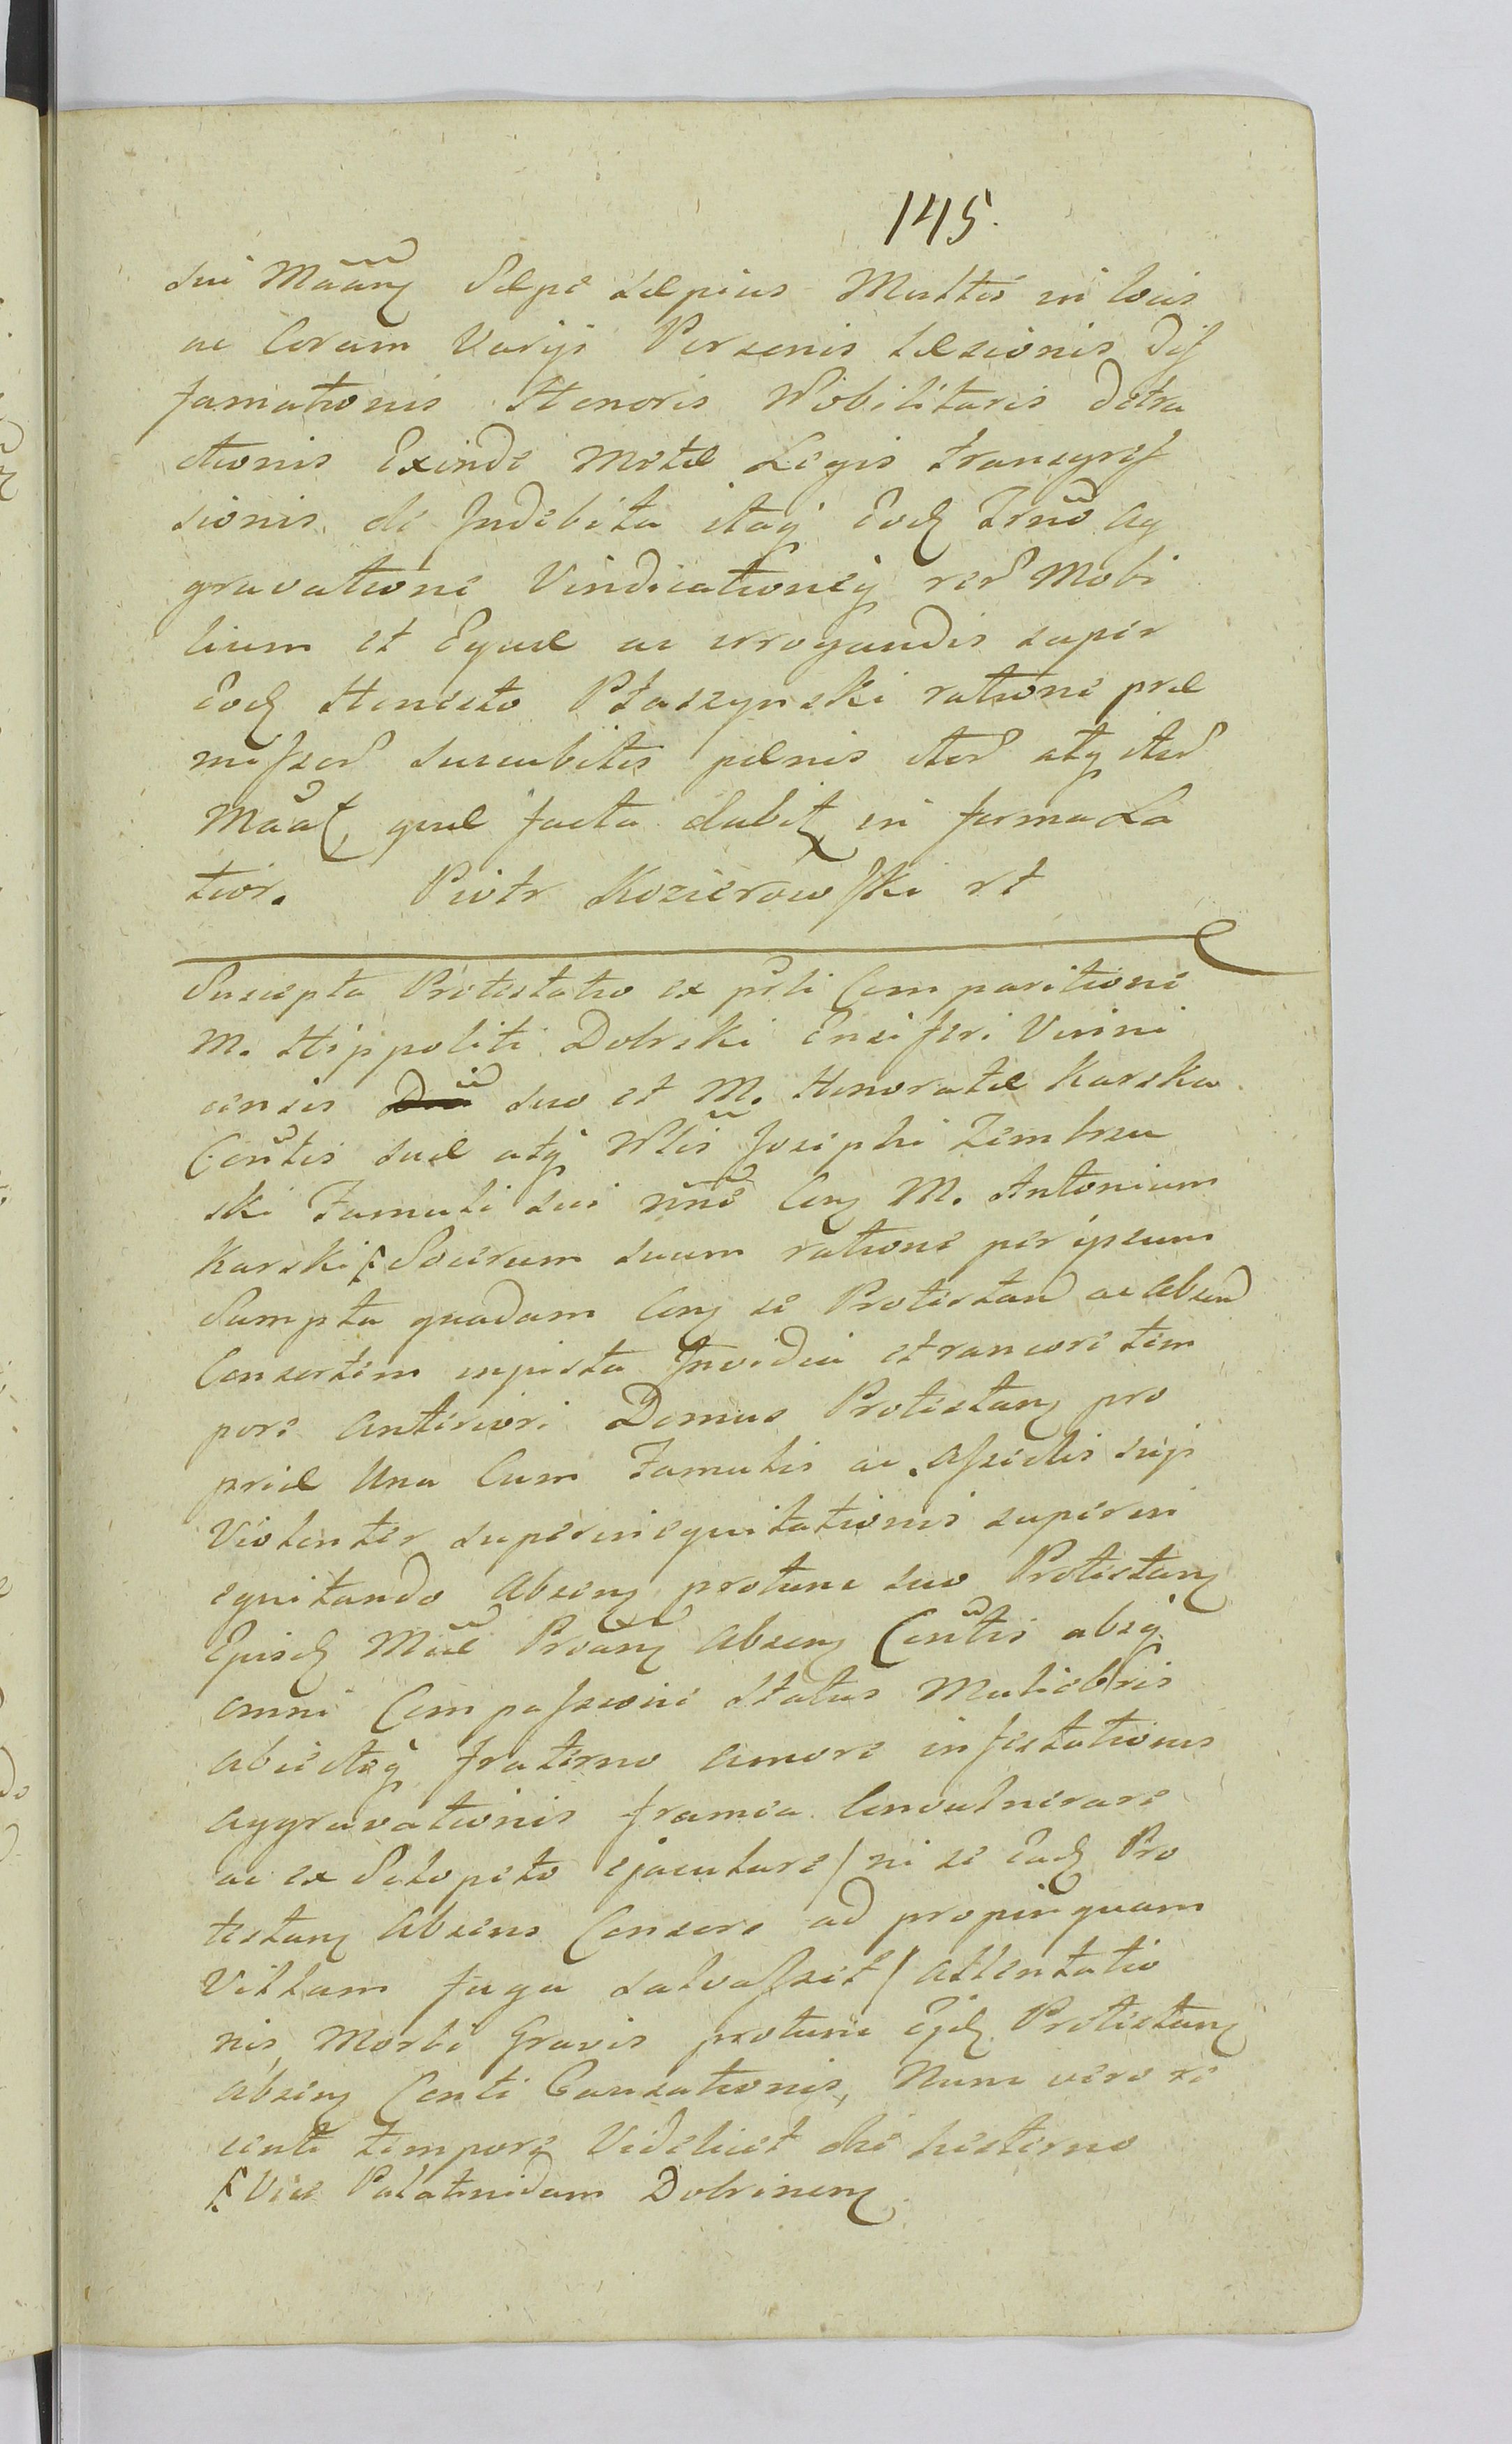 145.
sui Mãanz Sæpe sæpius Multis in locis
ac Coram Varijs Personis Læsionis Dif
famationis Honoris Nobilitaris detra
ctionis Exinde Motæ Legis transgres
sionis de Indebita itaq Eod Trño ag
gravatione Vindicationeq rer Mobi
lium et Equæ ac irrogandis super
Eod Honesto Płaszynski ratione præ
missor succubitis pænis iter atq iter
Mãat, quæ facta dabit in forma La
tior. Piotr Kozierowski rt
Suscepta Protestatio ex psli Comparitione
M. Hippoliti Dobrski Ensiferi Vinni
censis suo et M. Honoratæ Karska
Contis suæ atq Nlis Josephi Zembrzu
ski Famuli sui nñe Cinz M. Antonium
Karski Socerum suum ratione per ipsum
Sumpta quadam Cinz se Protestand ac absend
Consortem injusta Invidia et rancore tem
pore anteriori Domus Protestanz pro
priæ Una Cum Famulis ac assedis suis
Violenter superinequitationis superin
equitando absenz protunc suo Protestanz
Ejusd Mæ Proanz absenz Contis absq
omni Compassione Status Muliebris
abiectoq fraterno amore infestationis
aggravationis framea Convulnerare
ac ex Sclopeto ejaculare / ni se Ead Pro
testanz absens Consors ad propinquam
Villam fuga salvasset / attentatio
nis, Morbi Gravis protunc Ejd Protestanz
absenz Conti Causationis, Nunc vero re
centi tempore Videlicet die hesterno
Vice Palatinidam Dobrinenz